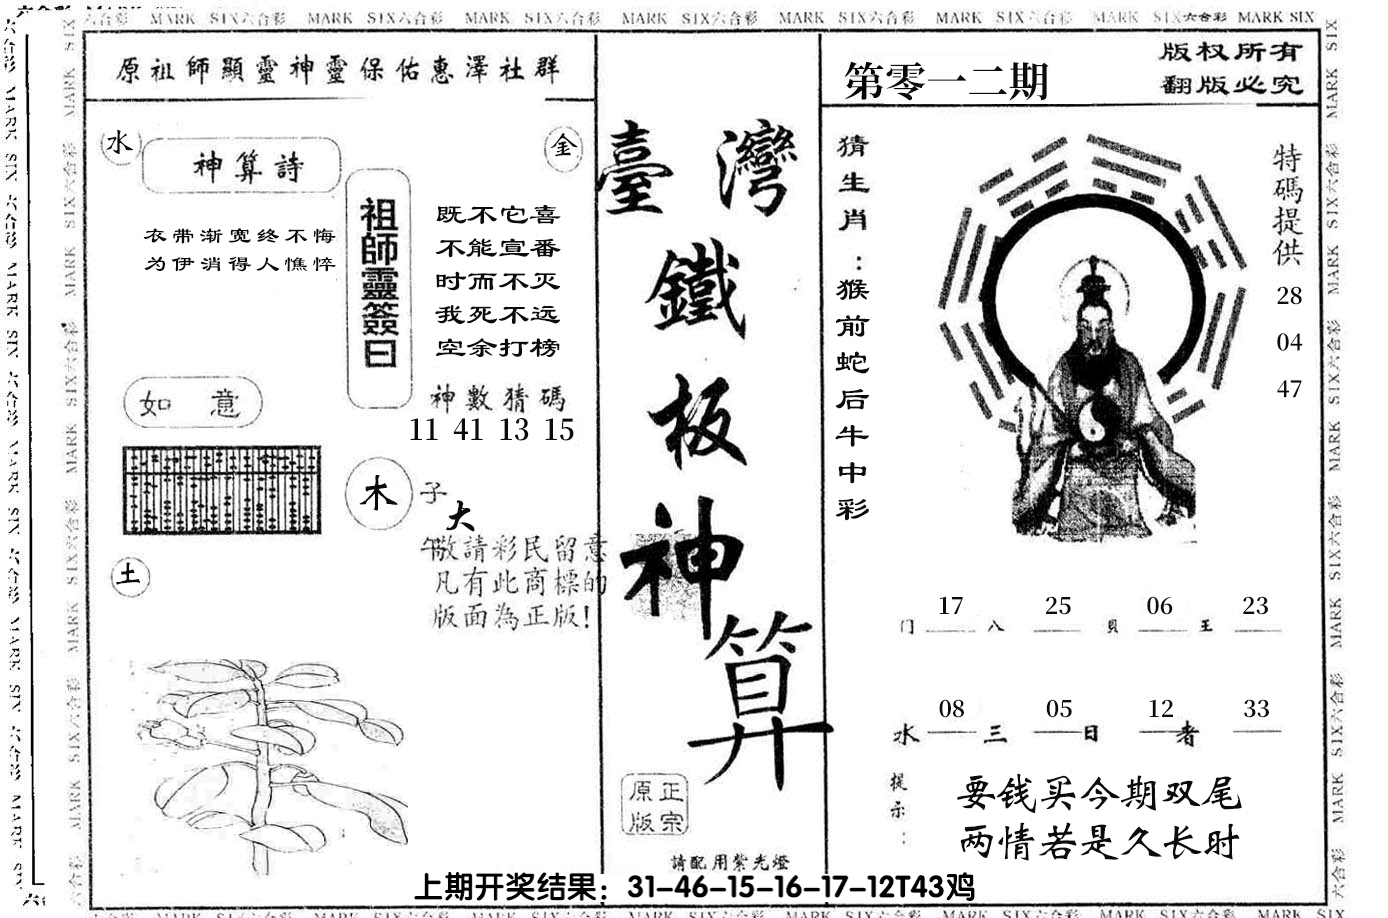 MARK SIX六合彩 MARK SIX六合彩 MARK SIX六合彩 MARK SIX六合彩 MARK SIX六合彩 MARK SIX六合彩 MARK SIX六合彩 MARK SIX
原祖師顯靈神靈保佑惠澤社群
水
金
神算詩
衣带渐宽终不悔
为伊消得人憔悴
祖師靈簽曰
既不它喜
不能宣番
时而不灭
我死不远
空余打榜
神數猜碼
11 41 13 15
如 意
木
子
大
午
敬請彩民留意
凡有此商標的
版面為正版!
土
臺灣
鐵
板
神
算
正宗
原版
請配用紫光燈
第零一二期
版权所有
翻版必究
猜生肖:猴前蛇后牛中彩
特碼提供
28
04
47
17 25 06 23
门 八 貝 王
08 05 12 33
水 三 日 者
提示:
要钱买今期双尾
两情若是久长时
上期开奖结果：31-46-15-16-17-12T43鸡